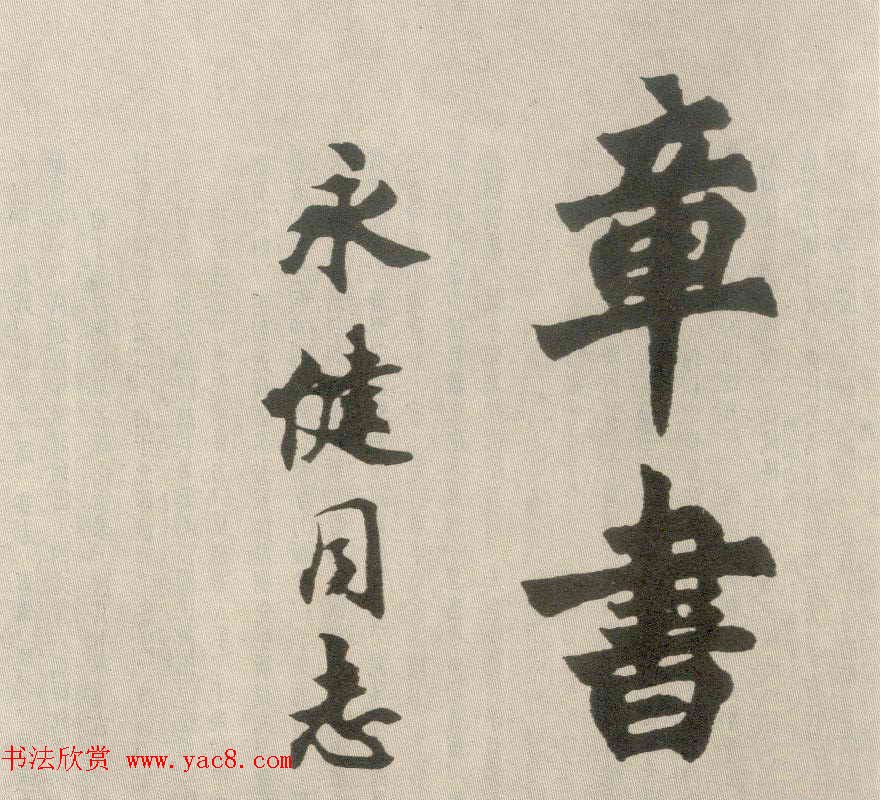 章書
永健同志
书法欣赏 www.yac8.com